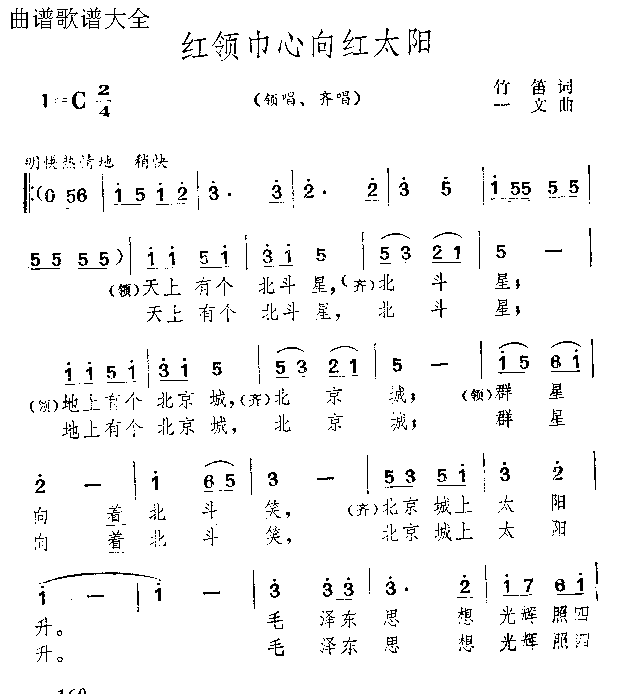 曲谱歌谱大全
红领巾心向红太阳
1=C 2/4
（领唱、齐唱）
竹笛词
一文曲
明快热情地 稍快
(0 56 | 1 5 1 2 | 3. 3 | 2. 2 | 3 5 | 1 55 5 5
5 5 5 5) | 1 1 5 1 | 3 1 5 | 5 3 2 1 | 5 —
（领）天上有个北斗星，（齐）北斗星；
天上有个北斗星，北斗星；
1 1 5 1 | 3 1 5 | 5 3 2 1 | 5 — | 1 5 6 1
（领）地上有个北京城，（齐）北京城；（领）群星
地上有个北京城，北京城；群星
2 — | 1 6 5 | 3 — | 5 3 5 1 | 3 2
向着北斗笑，（齐）北京城上太阳
向着北斗笑，北京城上太阳
1 — | 1 — | 3 3 3 | 3. 2 | 1 7 6 1
升。毛泽东思想光辉照四
升。毛泽东思想光辉照四